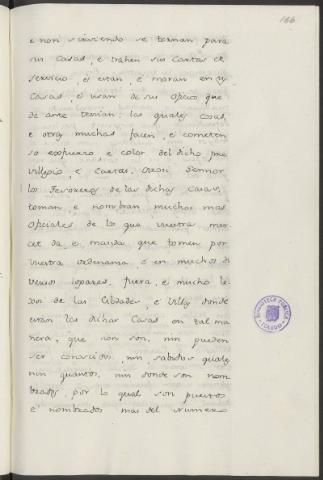 166
e non sirviendo se tornan para
sus Casas, e trahen sus Cartas de
servicio, e estan, e moran en sus
Casas, e usan de sus oficios que
de ante tenian: las quales cosas,
e otras muchas facen, e cometen
so esfuerzo, e color del dicho pre
villegio, e Cartas. Otrosi Sennor
los Tesoreros de las dichas casas,
toman e nombran muchos mas
oficiales de lo que vuestra mer
cet da, e manda, que tomen por
vuestra ordenanza, e en muchos di
versos logares, fuera, e mucho le
xos de las Cibdades, e Villas donde
estan las dichas Casas en tal ma
nera, que non son, nin pueden
ser conoscidos, nin sabidos quales
nin quantos, nin donde son nom
brados, por lo qual son puestos
e nombrados mas del numero
BIBLIOTECA PUBLICA
TOLEDO